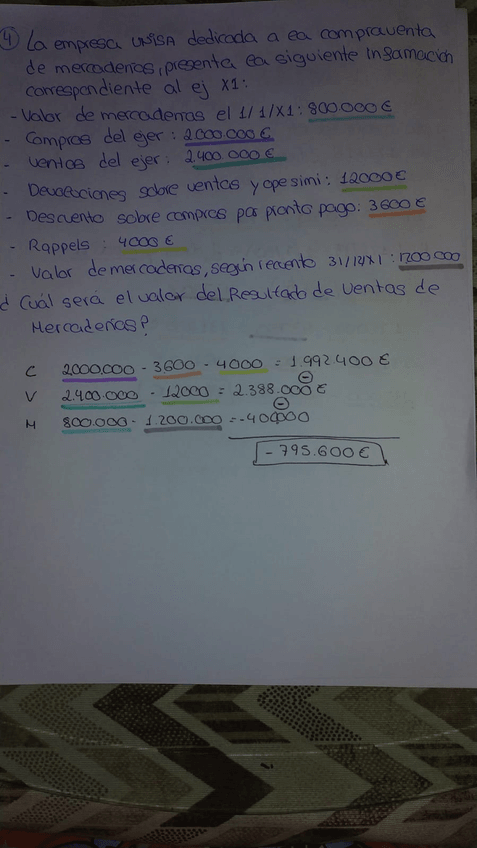 4) La empresa UNISA dedicada a la compraventa
de mercaderías, presenta la siguiente información
correspondiente al ej X1:
- Valor de mercaderías el 1/1/X1: 800.000 €
- Compras del ejer: 2000.000 €
- Ventas del ejer: 2.400.000 €
- Devoluciones sobre ventas y ope simi: 12000 €
- Descuento sobre compras por pronto pago: 3600 €
- Rappels: 4000 €
- Valor de mercaderías, según recuento 31/12/X1: 1200.000
¿ Cuál será el valor del Resultado de Ventas de
Mercaderías?
C 2000,000 - 3,600 - 4000 = 1.992400 €
V 2.400.000 - 12000 = 2.388.000 €
M 800.000 - 1.200.000 = -400000
- 795.600 €